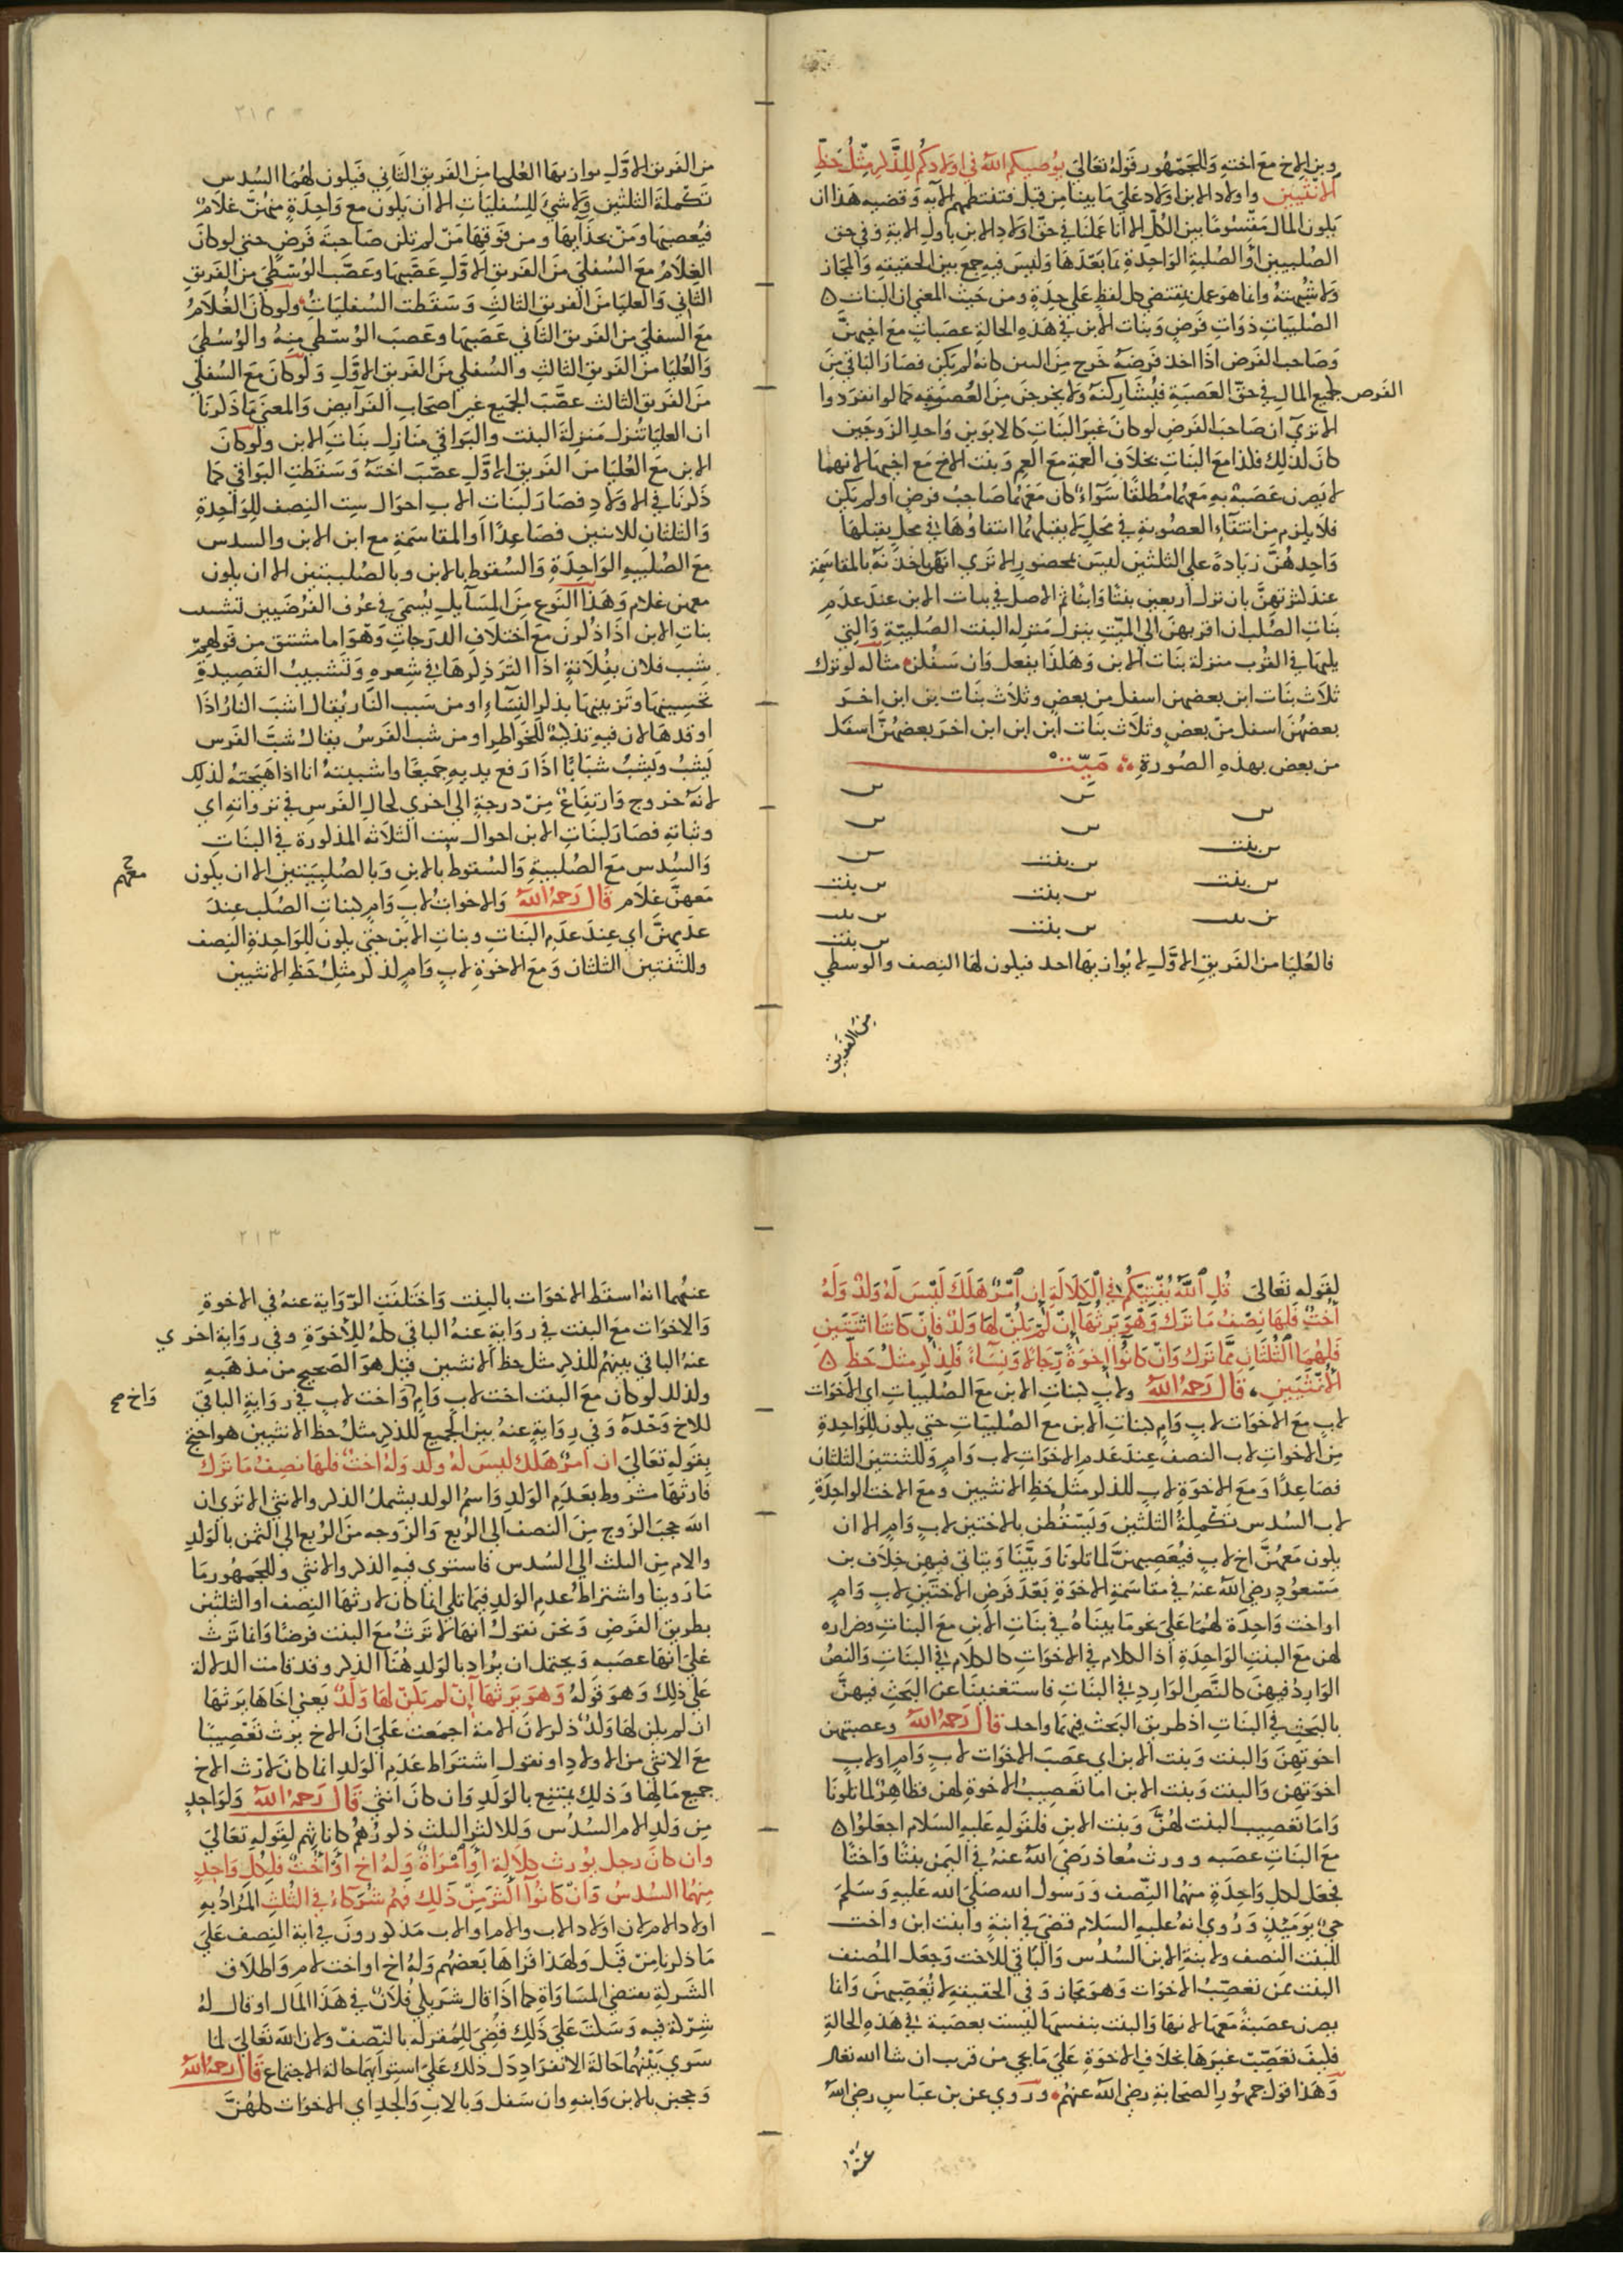 وبن الاخ مع اخته وللجمهور قوله تعالى يوصيكم الله في اولادكم للذكر مثل حظ
الانثيين واولاد الابن اولاد على ما بينا من قبل فتنتظمهم الآية وقضيه هذا ان
يكون المال مقسوما بين الكل الا انا عملنا في حق اولاد الابن باول الاية وفي حق
الصلبيين او الصلبية الواحدة بما بعدها وليس فيه جمع بين الحقيقة والمجاز
ولا شبهته وانما هو عمل بمقتضى كل لفظ على حدة ومن حيث المعنى ان البنات
الصلبيات ذوات فرض وبنات الابن في هذه الحالة عصبات مع اخيهن
وصاحب الفرض اذا اخذ فرضه خرج من البين كانه لم يكن فصار الباقي من
الفرض جميع المال في حق العصبة فيشاركنه ولا يخرجن من العصوبة كما لو انفردوا
الا ترى ان صاحب الفرض لو كان غير البنات كالابوين واحد الزوجين
كان كذلك فكذا مع البنات بخلاف العمة مع العم وبنت الاخ مع اخيها لانهما
لا يصرن عصبة به معهما مطلقا سواء كان معهما صاحب فرض او لم يكن
فلا يلزم من انتفاء العصوبة في محل لا يقبلهما انتفاؤها في محل يقبلها
واحدهن زيادة على الثلثين ليس بمحضور الا ترى انهن ياخذنه بالمقاسمة
عند كثرتهن بان ترك اربعين بنتا وابنا ثم الاصل في بنات الابن عند عدم
بنات الصلب ان اقربهن الى الميت ينزل منزلة البنت الصلبية والتي
يليها في القرب منزلة بنات الابن وهكذا يفعل وان سفلن مثاله لو ترك
ثلاث بنات ابن بعضهن اسفل من بعض وثلاث بنات بن ابن اخر
بعضهن اسفل من بعض وثلاث بنات ابن ابن ابن اخر بعضهن اسفل
من بعض بهذه الصورة ميت
س س س
س س س
س بنت س بنت س
س بنت س بنت س بنت
س بنت س بنت س بنت
س بنت
فالعليا من الفريق الاول لا يوازيها احد فيكون لها النصف والوسطى
من الفريق
٢١٢
من الفريق الاول يوازيها العليا من الفريق الثاني فيكون لهما السدس
تكملة الثلثين ولا شئ للسفليات الا ان يكون مع واحدة منهن غلام
فيعصبها ومن بحذائها ومن فوقها من لم تكن صاحبة فرض حتى لو كان
الغلام مع السفلى من الفريق الاول عصبها وعصب الوسطى من الفريق
الثاني والعليا من الفريق الثالث وسقطت السفليات ولو كان الغلام
مع السفلى من الفريق الثاني عصبها وعصب الوسطى منه والوسطى
والعليا من الفريق الثالث والسفلى من الفريق الاول ولو كان مع السفلى
من الفريق الثالث عصب الجميع غير اصحاب الفرايض والمعنى ما ذكرنا
ان العليا تنزل منزلة البنت والبواقي منازل بنات الابن ولو كان
الابن مع العليا من الفريق الاول عصب اخته وسقطت البواقي كما
ذكرنا في الاولاد فصار لبنات الاب احوال ست النصف للواحدة
والثلثان للاثنين فصاعدا او المقاسمة مع ابن الابن والسدس
مع الصلبيه الواحدة والسقوط بالابن وبالصلبيتين الا ان يكون
معهن غلام وهذا النوع من المسائل يسمى في عرف الفرضيين تشبيب
بنات الابن اذا ذكرن مع اختلاف الدرجات وهو اما مشتق من قولهم
شبب فلان بفلانة اذا اكثر ذكرها في شعره وتشبيب القصيدة
تحسينها وتزيينها بذكر النساء او من شبب النار يقال اشب النار اذا
اوقدها لان فيه تذكية للخواطر او من شب الفرس يقال شب الفرس
يشب ويشب شبابا اذا رفع يديه جميعا واشببته انا اذا هيجته لذلك
لانه خروج وارتفاع من درجة الى اخرى كحال الفرس في نزواته اي
وثباته فصار لبنات الابن احوال ست الثلاثه المذكورة في البنات
والسدس مع الصلبية والسقوط بالابن وبالصلبيتين الا ان يكون
معهم
معهن غلام قال رحمه الله والاخوات لاب وام كبنات الصلب عند
عدمهن اي عند عدم البنات وبنات الابن حتى يكون للواحدة النصف
وللثنتين الثلثان ومع الاخوة لاب وام للذكر مثل حظ الانثيين
لقوله تعالى قل الله يفتيكم في الكلالة ان امرؤ هلك ليس له ولد وله
اخت فلها نصف ما ترك وهو يرثها ان لم يكن لها ولد فان كانتا اثنتين
فلهما الثلثان مما ترك وان كانوا اخوة رجالا ونساء فللذكر مثل حظ
الانثيين قال رحمه الله ولاب كبنات الابن مع الصلبيات اي الاخوات
لاب مع الاخوات لاب وام كبنات الابن مع الصلبيات حتى يكون للواحدة
من الاخوات لاب النصف عند عدم الاخوات لاب وام وللثنتين الثلثان
فصاعدا ومع الاخوة لاب للذكر مثل حظ الانثيين ومع الاخت الواحدة
لاب السدس تكملة الثلثين ويسقطن بالاختين لاب وام الا ان
يكون معهن اخ لاب فيعصبهن لما تلونا وبينا ويتاتى فيهن خلاف بن
مسعود رضي الله عنه في مقاسمة الاخوة بعد فرض الاختين لاب وام
او اخت واحدة لهما على نحو ما بيناه في بنات الابن مع البنات وضراره
لهن مع البنت الواحدة اذ الكلام في الاخوات كالكلام في البنات والنص
الوارد فيهن كالنص الوارد في البنات فاستغنينا عن البحث فيهن
بالبحث في البنات اذ طريق البحث فيهما واحد قال رحمه الله وعصبتهن
اخوتهن والبنت وبنت الابن اي عصب الاخوات لاب وام او لاب
اخوتهن والبنت وبنت الابن اما تعصيب الاخوة لهن فظاهر لما تلونا
واما تعصيب البنت لهن وبنت الابن فلقوله عليه السلام اجعلوا
مع البنات عصبه وورث معاذ رضي الله عنه في اليمن بنتا واختا
فجعل لكل واحدة منهما النصف ورسول الله صلى الله عليه وسلم
حي يومئذ وروي انه عليه السلام قضى في ابنة وابنت ابن واخت
للبنت النصف ولابنة الابن السدس والباقي للاخت وجعل المصنف
البنت ممن تعصب الاخوات وهو مجاز وفي الحقيقة لا تعصبهن وانما
يصرن عصبة معها لانها والبنت بنفسها ليست بعصبة في هذه الحالة
فكيف تعصب غيرها بخلاف الاخوة على ما يجي من قرب ان شا الله تعالى
وهذا قول جمهور الصحابة رضي الله عنهم وروي عن بن عباس رضي الله
عنهما
٢١٣
عنهما انه اسقط الاخوات بالبنت واختلفت الرواية عنه في الاخوة
والاخوات مع البنت في رواية عنه الباقي كله للاخوة وفي رواية اخرى
عنه الباقي بينهم للذكر مثل حظ الانثيين قيل هو الصحيح من مذهبه
ولذلك لو كان مع البنت اخت لاب وام واخت لاب في رواية الباقي
واخ صح
للاخ وحده وفي رواية عنه بين الجميع للذكر مثل حظ الانثيين هو احتج
بقوله تعالى ان امرؤ هلك ليس له ولد وله اخت فلها نصف ما ترك
فارثها مشروط بعدم الولد واسم الولد يشمل الذكر والانثى الا ترى ان
الله حجب الزوج من النصف الى الربع والزوجه من الربع الى الثمن بالولد
والام من الثلث الى السدس فاستوى فيه الذكر والانثى وللجمهور ما
ما روينا واشتراط عدم الولد فيما تلي انما كان لارثها النصف او الثلثين
بطريق الفرض ونحن نقول انها لا ترث مع البنت فرضا وانما ترث
على انها عصبه ويحتمل ان يراد بالولد هنا الذكر وقد قامت الدلالة
على ذلك وهو قوله وهو يرثها ان لم يكن لها ولد يعني اخاها يرثها
ان لم يكن لها ولد ذكر لان الامة اجمعت على ان الاخ يرث تعصيبا
مع الانثى من الاولاد او نقول اشتراط عدم الولد انما كان لارث الاخ
جميع مالها وذلك يمتنع بالولد وان كان انثى قال رحمه الله ولواحد
من ولد الام السدس وللاكثر الثلث ذكورهم كاناثهم لقوله تعالى
وان كان رجل يورث كلالة او امراة وله اخ او اخت فلكل واحد
منهما السدس وان كانوا اكثر من ذلك فهم شركاء في الثلث المراد به
اولاد الام لان اولاد الاب والام او الاب مذكورون في اية النصف على
ما ذكرنا من قبل ولهذا قراها بعضهم وله اخ او اخت لام واطلاق
الشركة يقتضي المساواة كما اذا قال شريكي فلان في هذا المال او قال له
شركة فيه وسكت على ذلك قضي للمقر له بالنصف ولان الله تعالى لما
سوى بينهما حالة الانفراد دل ذلك على استوائهما حالة الاجتماع قال رحمه الله
وحجبن بالابن وابنه وان سفل وبالاب والجد اي الاخوات كلهن